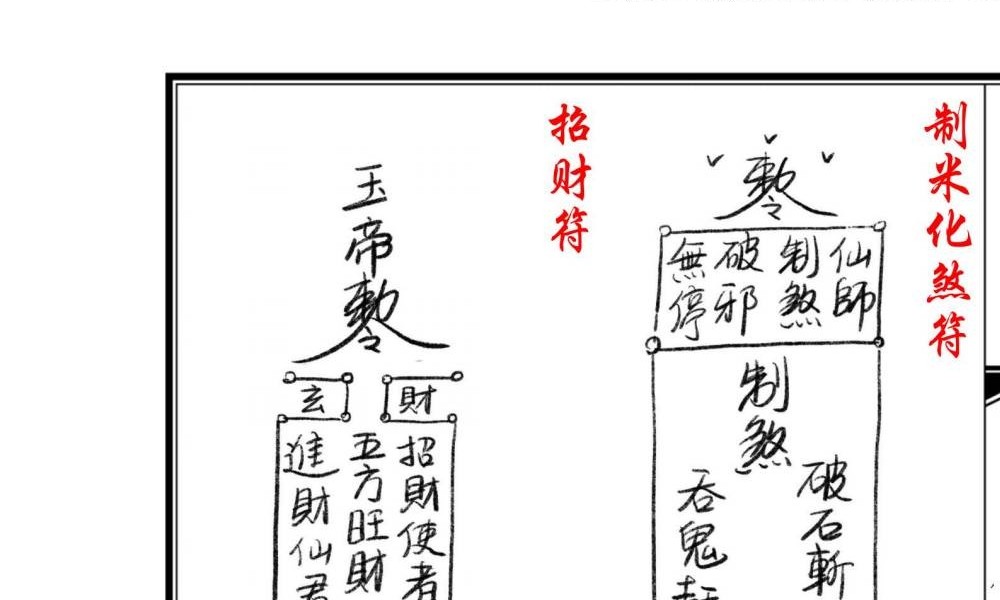 制米化煞符
敕令
仙師
制煞
破邪
無停
制煞
破石斬
吞鬼
招财符
玉帝敕令
財
玄
招財使者
五方旺財
進財仙君